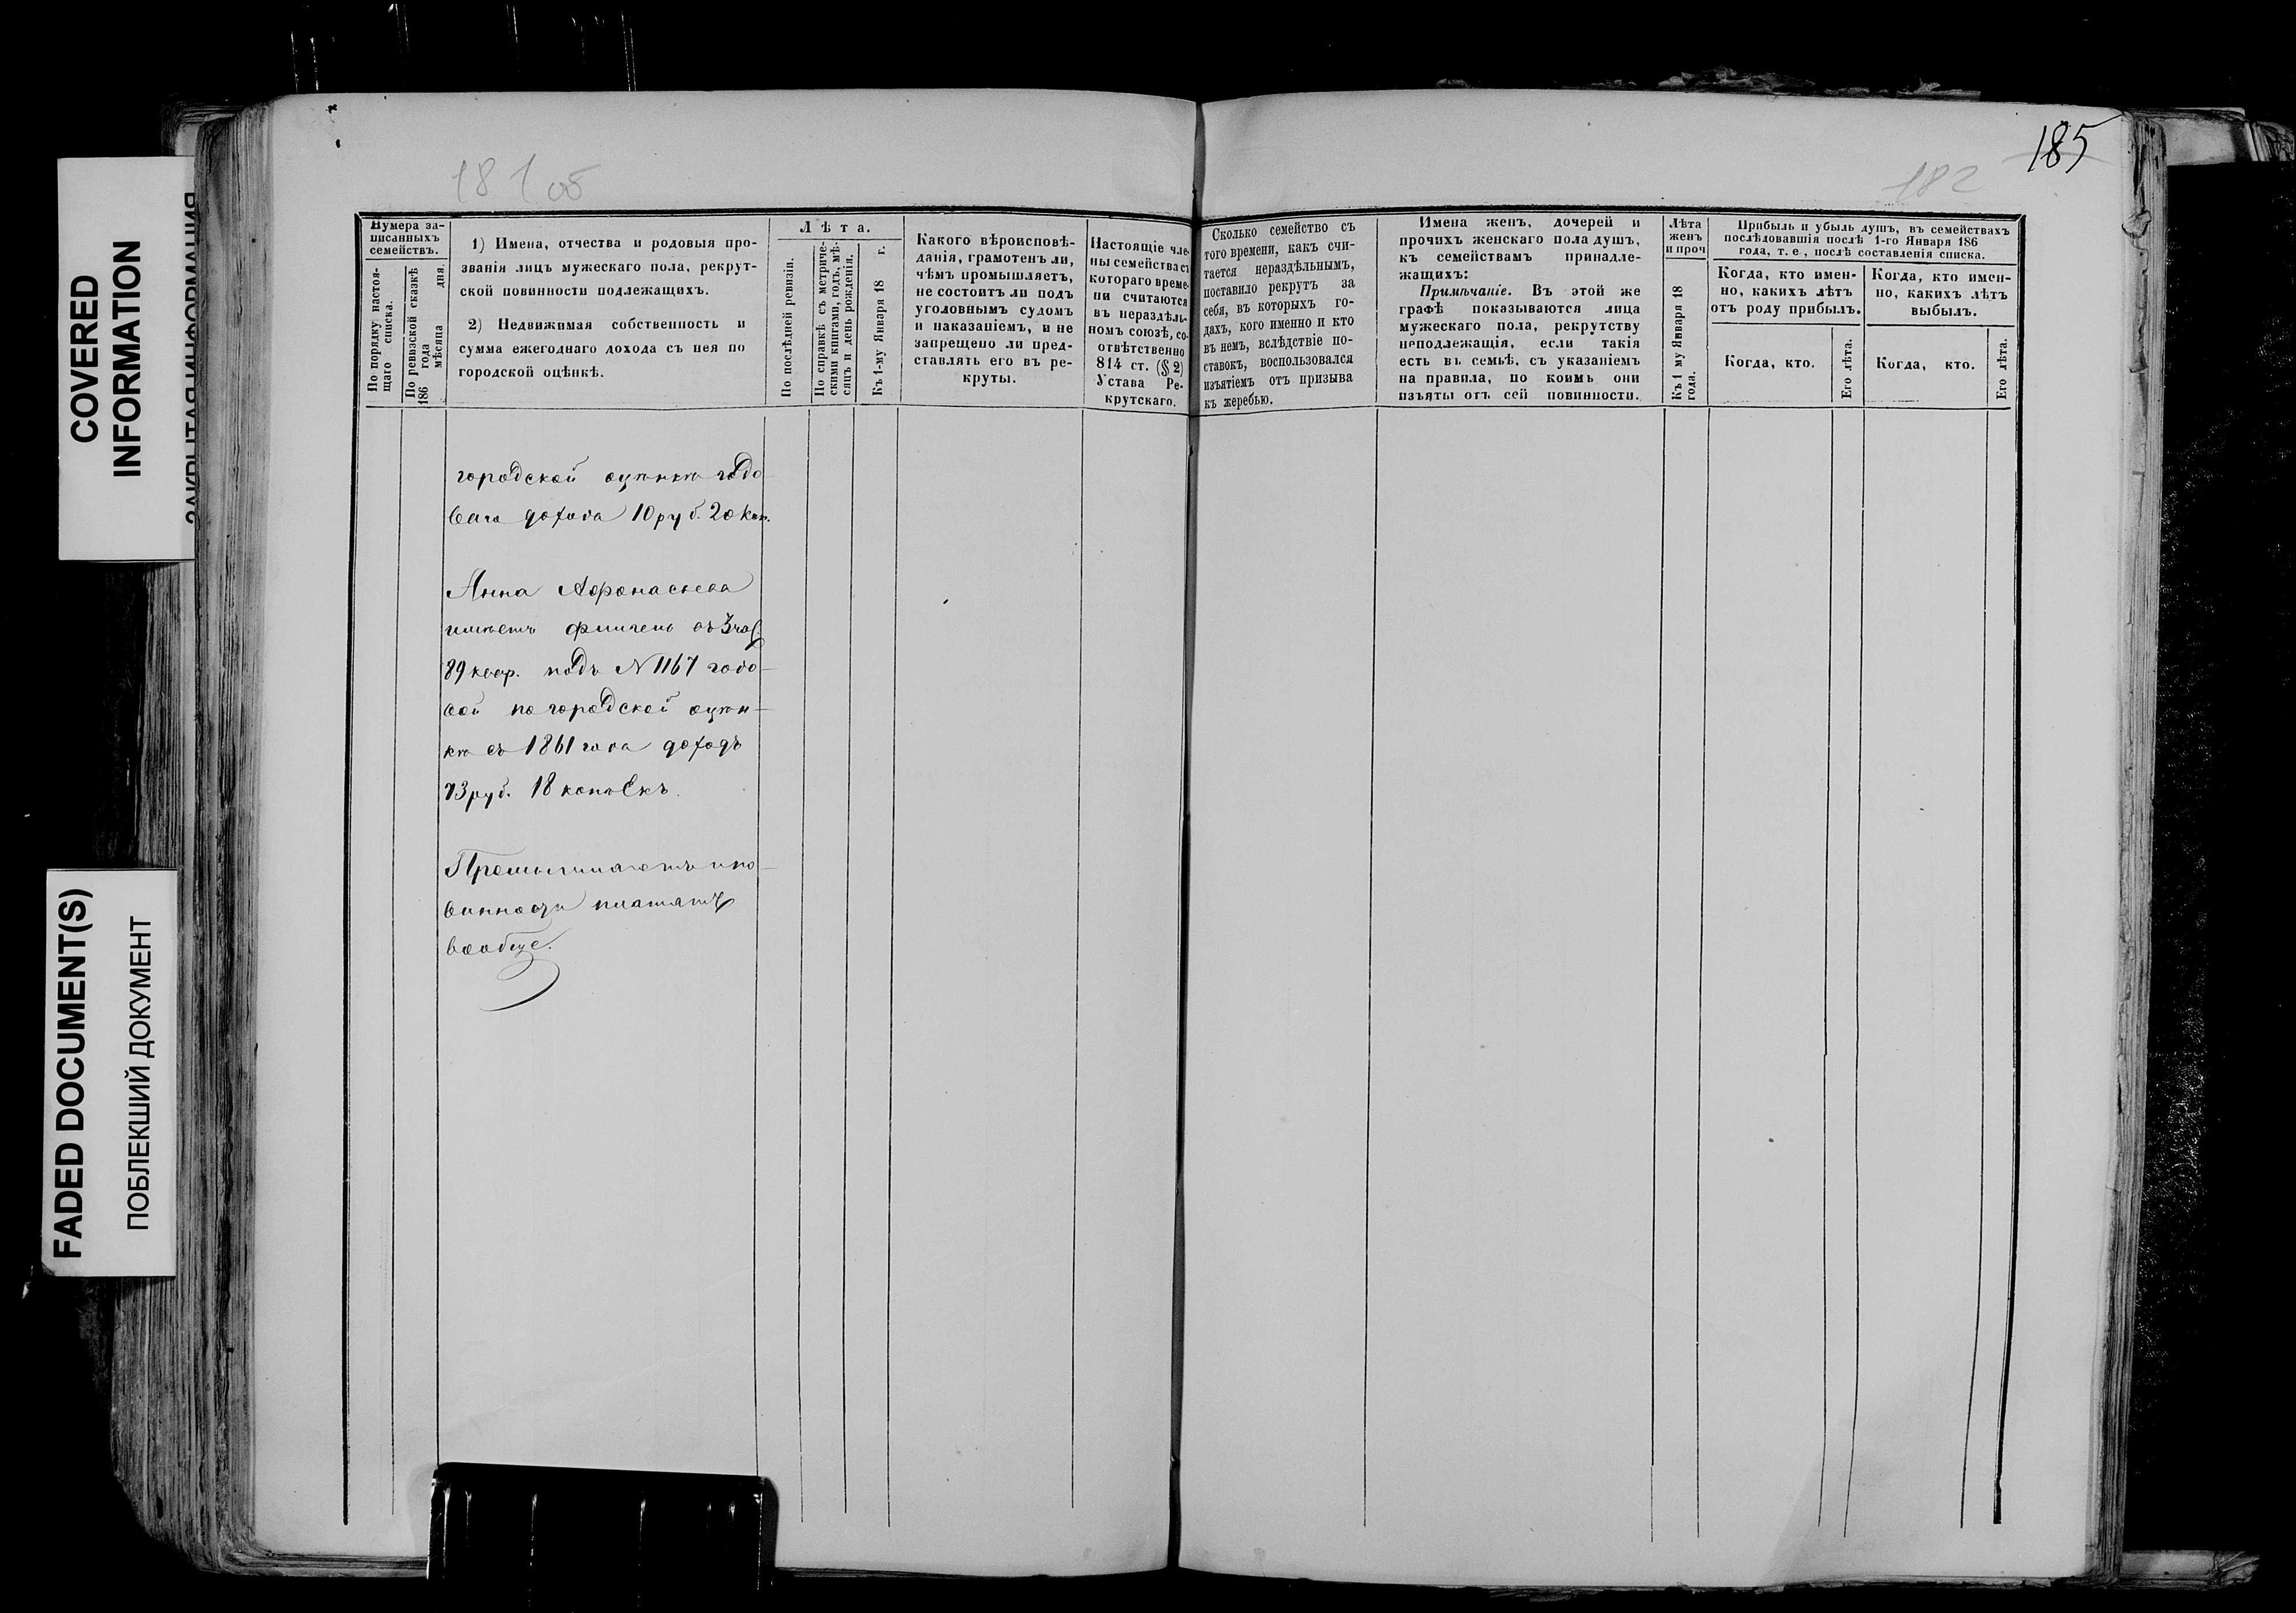 COVERED
INFORMATION
ЗАКРЫТАЯ ИНФОРМАЦИЯ
FADED DOCUMENT(S)
ПОБЛЕКШИЙ ДОКУМЕНТ
181 об
182
185
Нумера за-
писанныхъ
семействъ.
По порядку настоя-
щаго списка.
По ревизской сказкѣ
186 года мѣсяца дня.
1) Имена, отчества и родовыя про-
званія лицъ мужескаго пола, рекрут-
ской повинности подлежащихъ.
2) Недвижимая собственность и
сумма ежегоднаго дохода съ нея по
городской оцѣнкѣ.
Лѣта.
По послѣдней ревизіи.
По справкѣ съ метриче-
скими книгами, годъ, мѣ-
сяцъ и день рожденія.
Къ 1-му Января 18 г.
Какого вѣроисповѣ-
данія, грамотенъ ли,
чѣмъ промышляетъ,
не состоитъ ли подъ
уголовнымъ судомъ
и наказаніемъ, и не
запрещено ли пред-
ставлять его въ ре-
круты.
Настоящіе чле-
ны семейства съ
котораго време-
ни считаются
въ нераздѣль-
номъ союзѣ, со-
отвѣтственно
814 ст. (§ 2)
Устава Ре-
крутскаго.
Сколько семейство съ
того времени, какъ счи-
тается нераздѣльнымъ,
поставило рекрутъ за
себя, въ которыхъ го-
дахъ, кого именно и кто
въ немъ, вслѣдствіе по-
ставокъ, воспользовался
изъятіемъ отъ призыва
къ жеребью.
Имена женъ, дочерей и
прочихъ женскаго пола душъ,
къ семействамъ принадле-
жащихъ:
Примѣчаніе. Въ этой же
графѣ показываются лица
мужескаго пола, рекрутству
неподлежащія, если такія
есть въ семьѣ, съ указаніемъ
на правила, по коимъ они
изъяты отъ сей повинности.
Лѣта
женъ
и проч
Къ 1 му Января 18
года.
Прибыль и убыль душъ, въ семействахъ
послѣдовавшія послѣ 1-го Января 186
года, т. е., послѣ составленія списка.
Когда, кто имен-
но, какихъ лѣтъ
отъ роду прибылъ.
Когда, кто.
Его лѣта.
Когда, кто имен-
но, какихъ лѣтъ
выбылъ.
Когда, кто.
Его лѣта.
городской оцѣнкѣ годо-
ваго дохода 10 руб. 20 коп.
Анна Афонасьева
имѣетъ флигель въ 3 час.
89 квар. подъ N 1167 годо-
вой по городской оцѣн-
кѣ съ 1861 года доходъ
73 руб. 18 копѣекъ.
Промышляетъ и по-
винности платятъ
вообще.